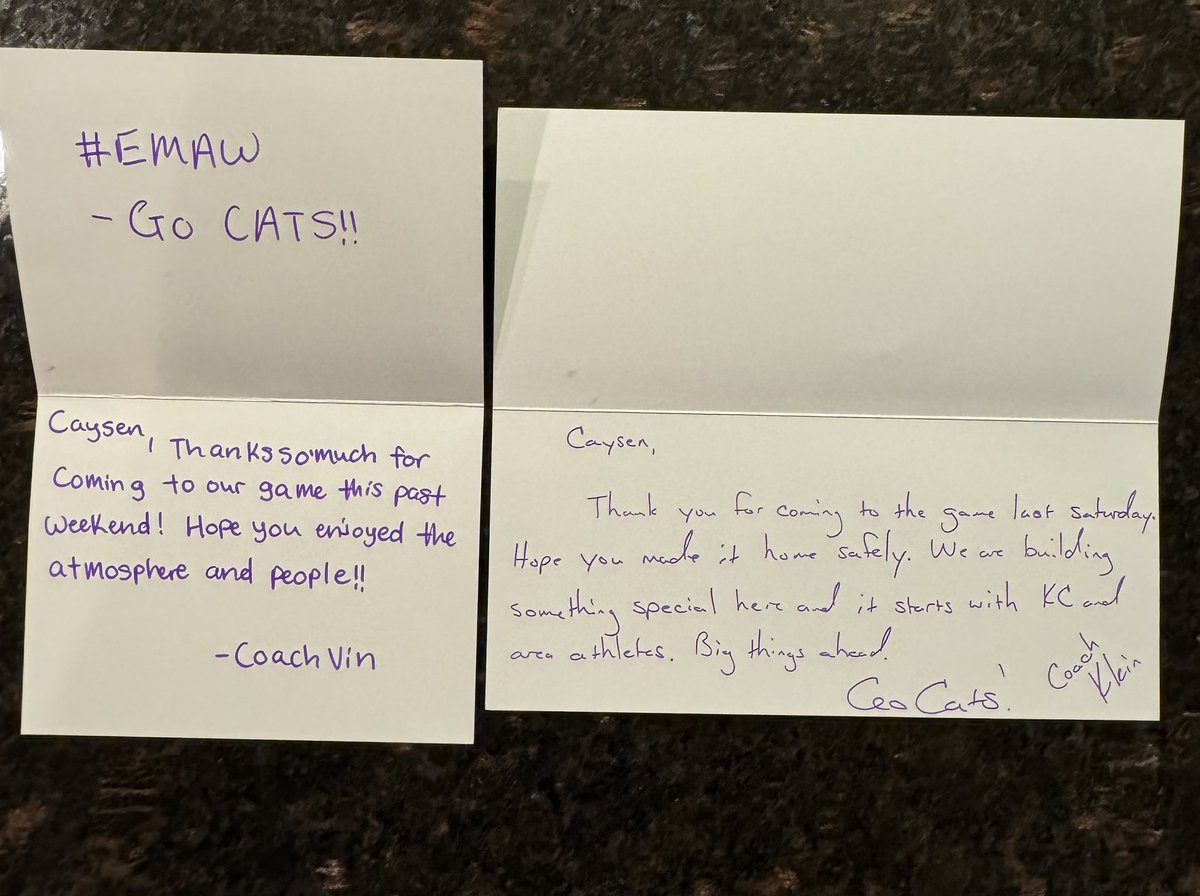 #EMAW
- Go CATS!!
Caysen, Thanks so much for
Coming to our game this past
weekend! Hope you enjoyed the
atmosphere and people!!
- Coach Vin
Caysen,
Thank you for coming to the game last Saturday.
Hope you made it home safely. We are building
something special here and it starts with KC and
area athletes. Big things ahead.
Go Cats!
Coach
Klein